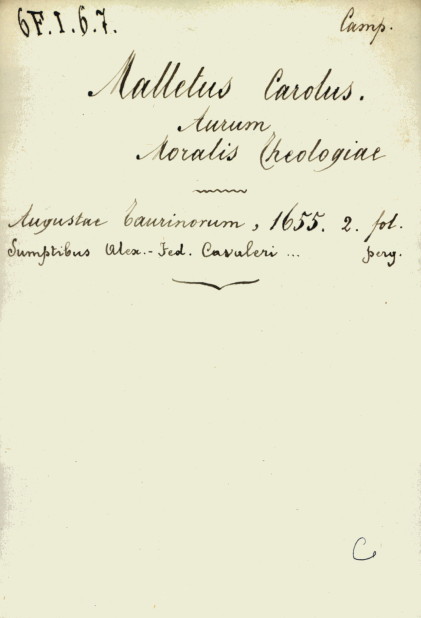 6F.I.6.7.
Camp.
Malletus Carolus.
Aurum
Moralis Theologiae
Augustae Taurinorum, 1655. 2. fol.
Sumptibus Alex.-Fed. Cavaleri ... perg.
C